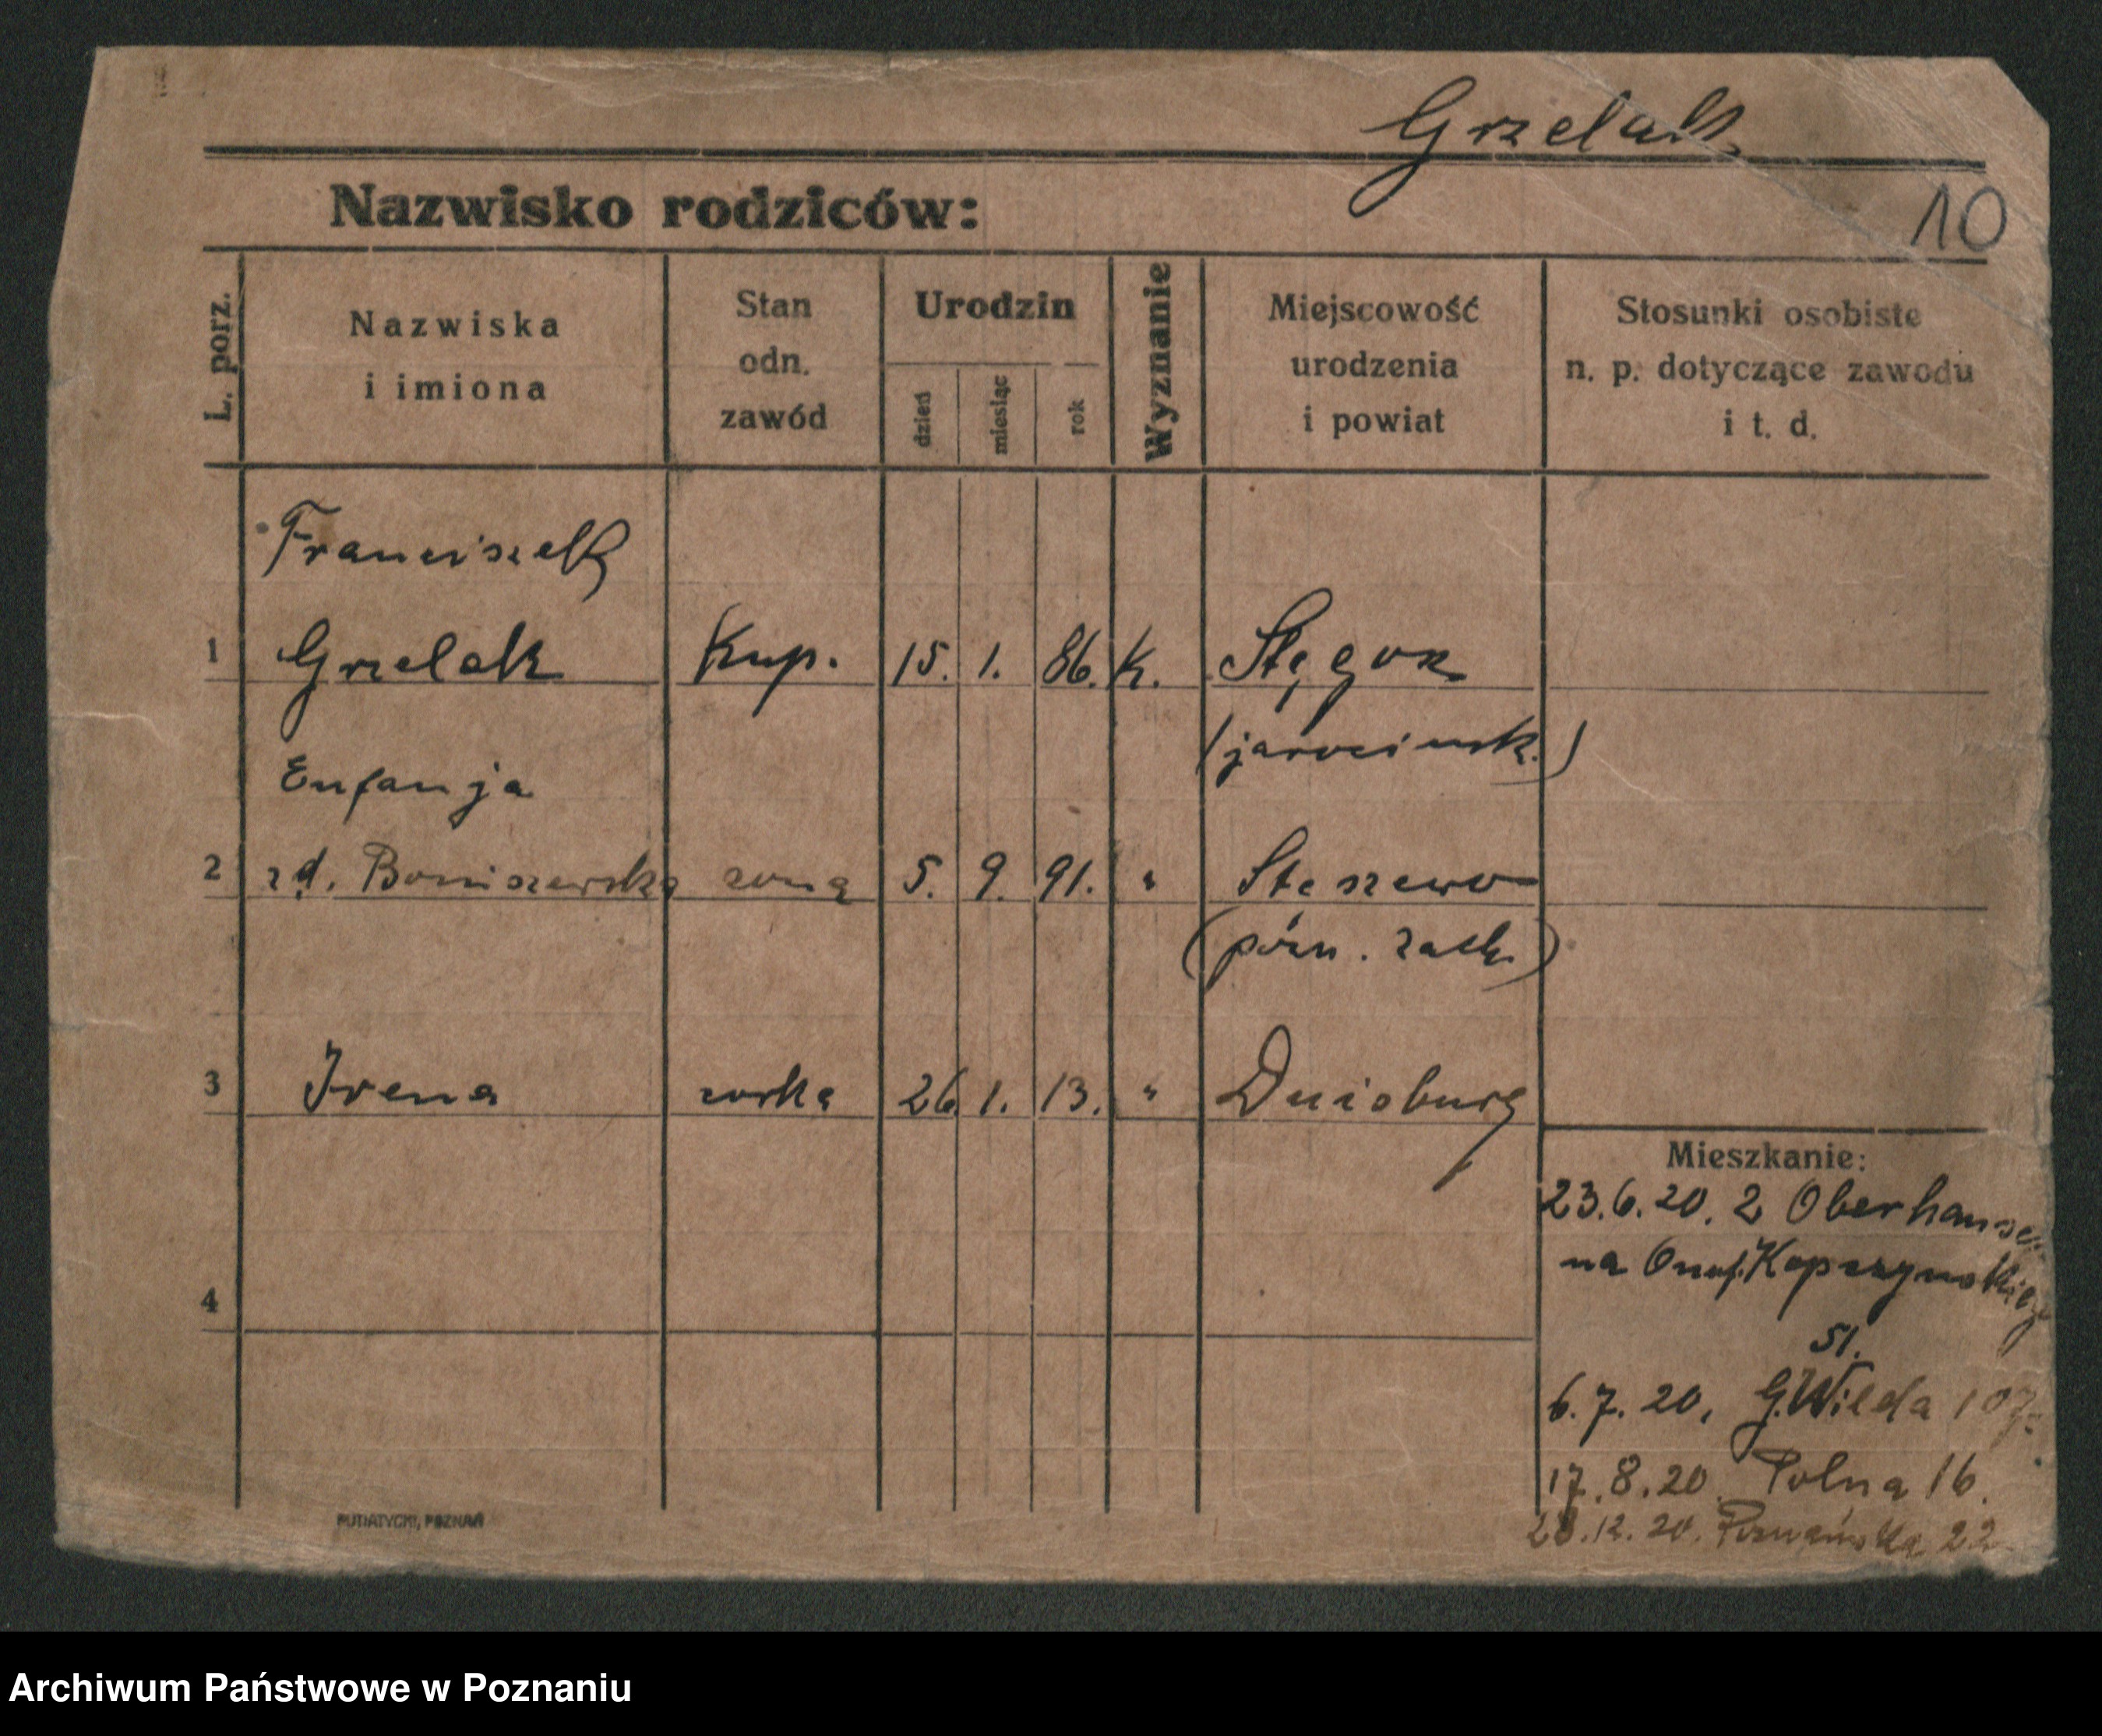 Grzelak
Nazwisko rodziców:
10
L. porz.
Nazwiska
i imiona
Stan
odn.
zawód
Urodzin
dzień
miesiąc
rok
Wyznanie
Miejscowość
urodzenia
i powiat
Stosunki osobiste
n. p. dotyczące zawodu
i t. d.
Franciszek
1 Grzelak Kup. 15. 1. 86. K. Stęgosz
(jarocinsk.)
Eufanja
2 zd. Boniszewska zona 5. 9. 91. " Stęszewo
(pózn. zach.)
3 Irena corka 26 1. 13. " Duisburg
Mieszkanie:
23.6.20. z Oberhausen
na Onuf. Kopczynskiego
51.
4
6.7.20, G. Wilda 107.
17.8.20. Polna 16.
28.12.20. Poznańska 22
PUTIATYCKI, POZNAŃ
Archiwum Państwowe w Poznaniu